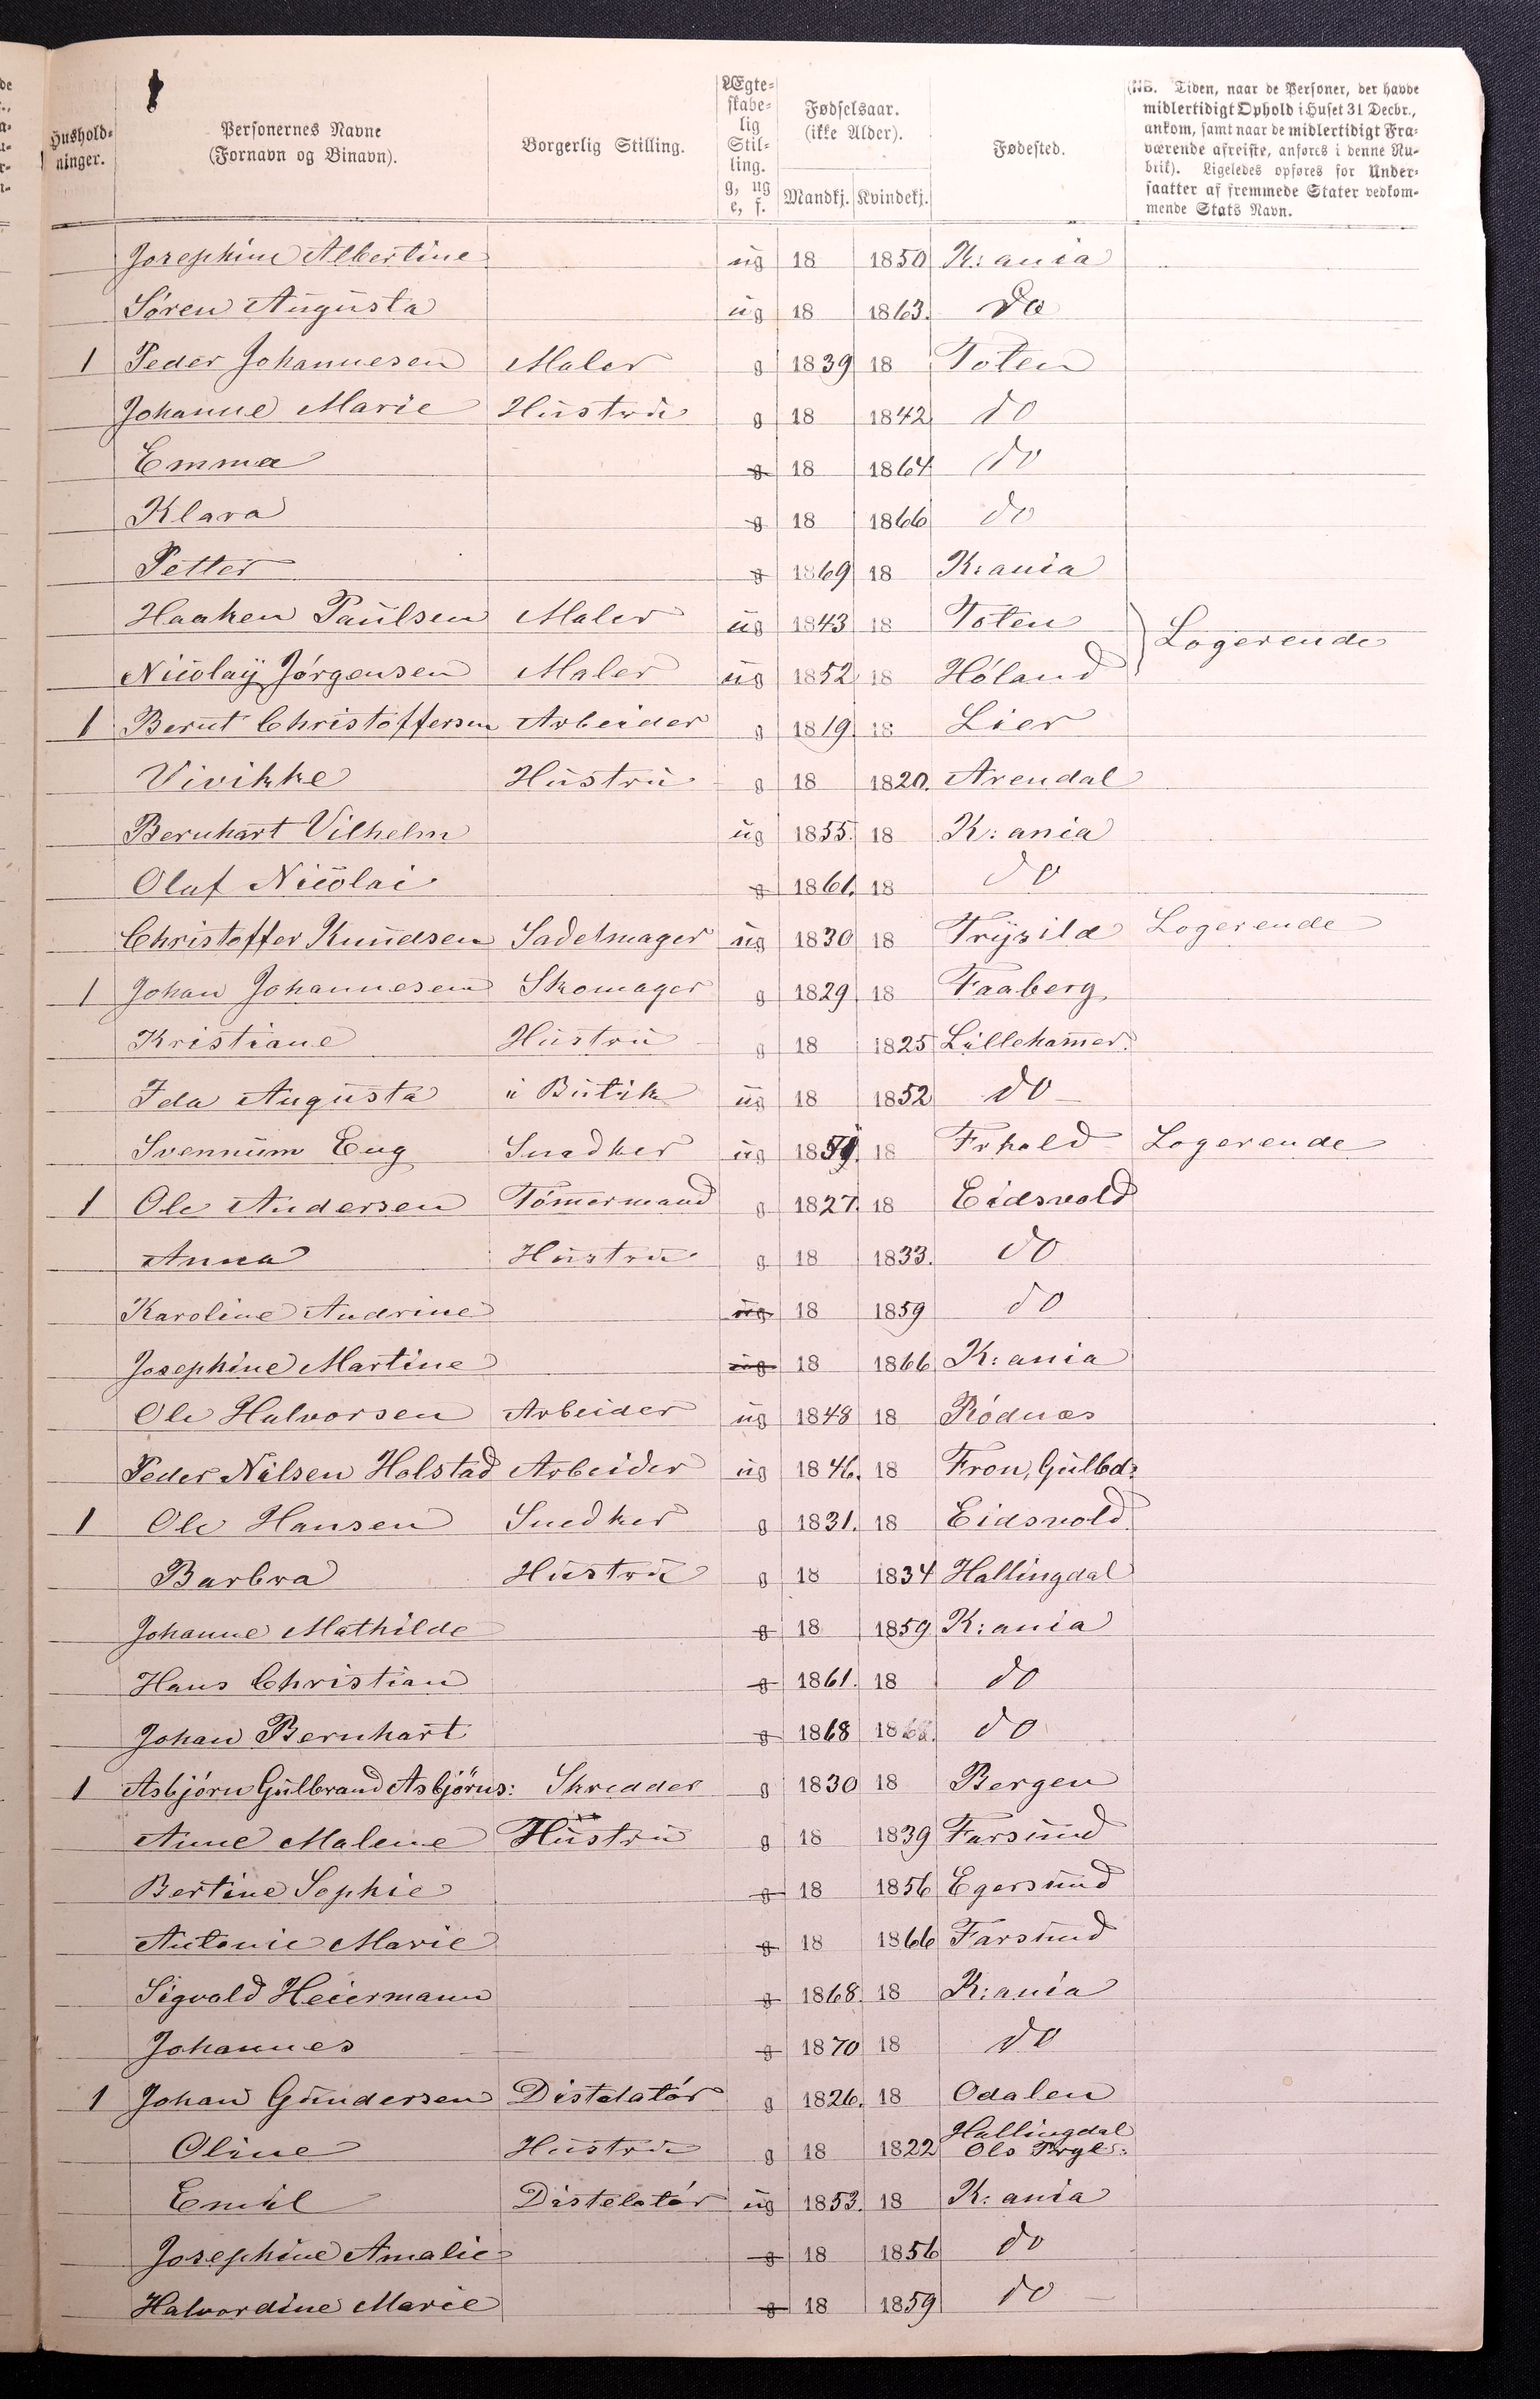 Hushold-
ninger.
Personernes Navne
(Fornavn og Binavn).
Borgerlig Stilling.
Ægte-
skabe-
lig
Stil-
ling.
g, ug
e, f.
Fødselsaar.
(ikke Alder).
Mandkj. Kvindekj.
Fødested.
(NB. Tiden, naar de Personer, der havde
midlertidigt Ophold i Huset 31 Decbr.,
ankom, samt naar de midlertidigt Fra-
værende afreiste, anføres i denne Ru-
brik). Ligeledes opføres for Under-
saatter af fremmede Stater vedkom-
mende Stats Navn.
Josephine Albertine ug 18 1850 K:ania
Søren Augusta ug 18 1863. do
1 Peder Johannesen Maler g 1839 18 Toten
Johanne Marie Hustru g 18 1842 do
Emma g 18 1864 do
Klara g 18 1866 do
Petter g 1869 18 K:ania
Haaken Paulsen Maler ug 1843 18 Toten
Logerende
Nicolay Jørgensen Maler ug 1852 18 Høland
1 Bernt Christoffersen Arbeider g 1819 18 Lier
Vivikke Hustru g 18 1820. Arendal
Bernhart Vilhelm ug 1855. 18 K:ania
Oluf Nicolai g 1861. 18 do
Christoffer Knudsen Sadelmager ug 1830 18 Trysild Logerende
1 Johan Johannesen Skomager g 1829 18 Faaberg
Kristiane Hustru g 18 1825 Lillehamer.
Ida Augusta i Butik ug 18 1852 do
Svennum Eug Snedker ug 18 18 Frhald Logerende
1 Ole Andersen Tømmermand g 1827. 18 Eidsvold
Anna Hustru g 18 1833. do
Karoline Andrine ug 18 1859 do
Josephine Martine ug 18 1866 K:ania
Ole Halvorsen Arbeider ug 1848 18 Rødnæs
Peder Nilsen Holstad Arbeider ug 1846. 18 Fron, Gulbd:
1 Ole Hansen Snedker g 1831. 18 Eidsvold
Barbra Hustru g 18 1834 Hallingdal
Johanne Mathilde g 18 1859 K:ania
Hans Christian g 1861. 18 do
Johan Bernhart g 1868 18 do
1 Asbjørn Gulbrand Asbjørns: Skredder g 1830 18 Bergen
Anne Malene Hustru g 18 1839 Farsund
Bertine Sophie g 18 1856 Egersund
Antonie Marie g 18 1866 Farsund
Sigvald Heiermann g 1868. 18 K:ania
Johannes g 1870 18 do
1 Johan Gundersen Distelatør g 1826. 18 Odalen
Hallingdal
Oline Hustru g 18 1822 Ols
Emihl Distelatør ug 1853. 18 K:ania
Josephine Amalie g 18 1856 do
Halvordine Marie g 18 1859 do